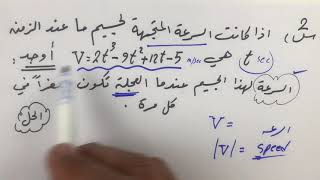 س2) اذا كانت السرعة المتجهة لجسيم ما عند الزمن
t sec هي V=2t³-9t²+12t-5 m/sec أوجد :
السرعة لهذا الجسيم عندما العجلة تكون صفراً في
كل مرة.
الحل
V =
|V| = speed